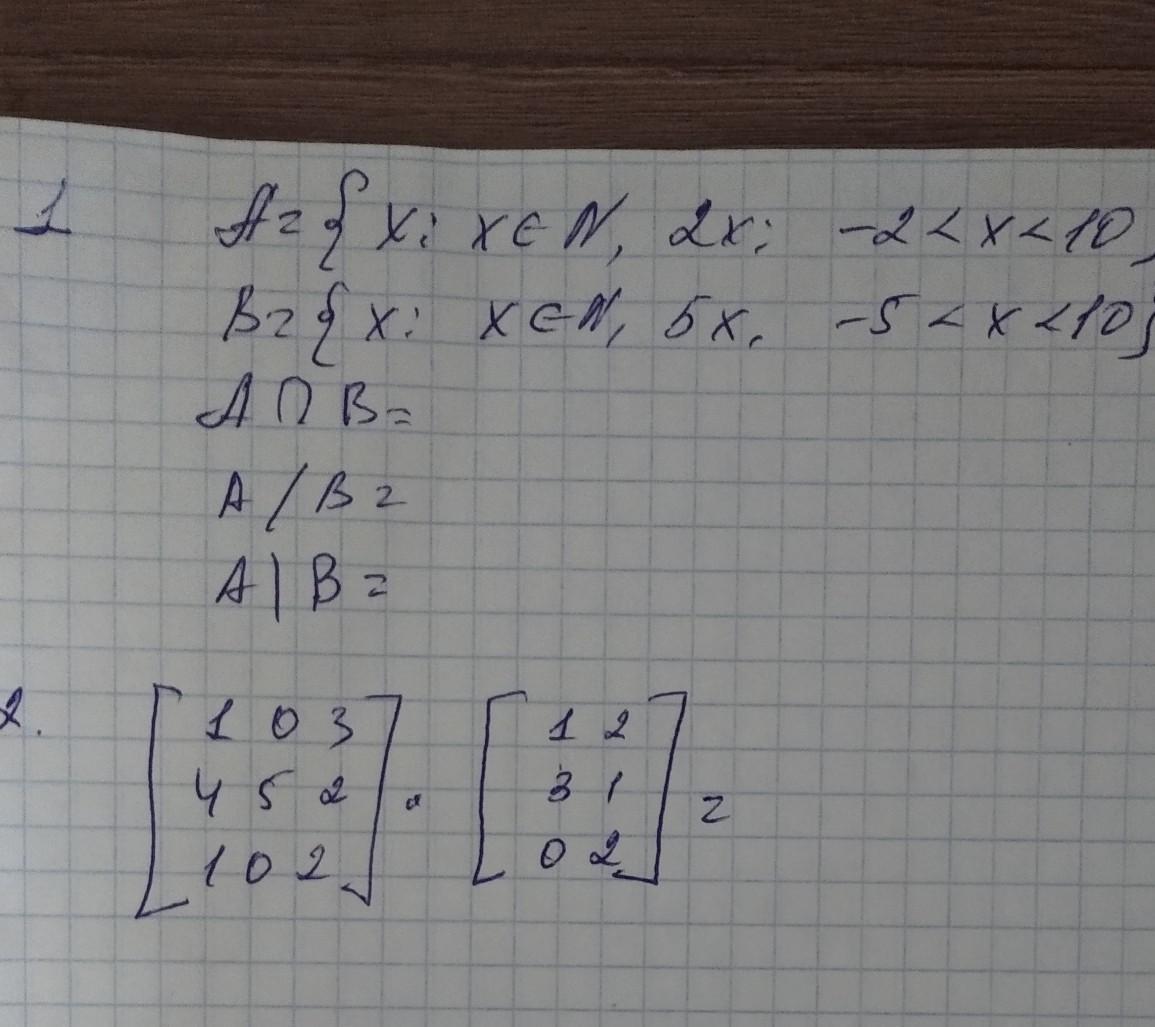 1 A = { x: x ∈ N, 2x; -2 < x < 10,
B = { x: x ∈ N, 5x. -5 < x < 10}
A ∩ B =
A / B =
A | B =
2. [ 1 0 3 ] · [ 1 2 ] =
4 5 2 3 1
1 0 2 0 2